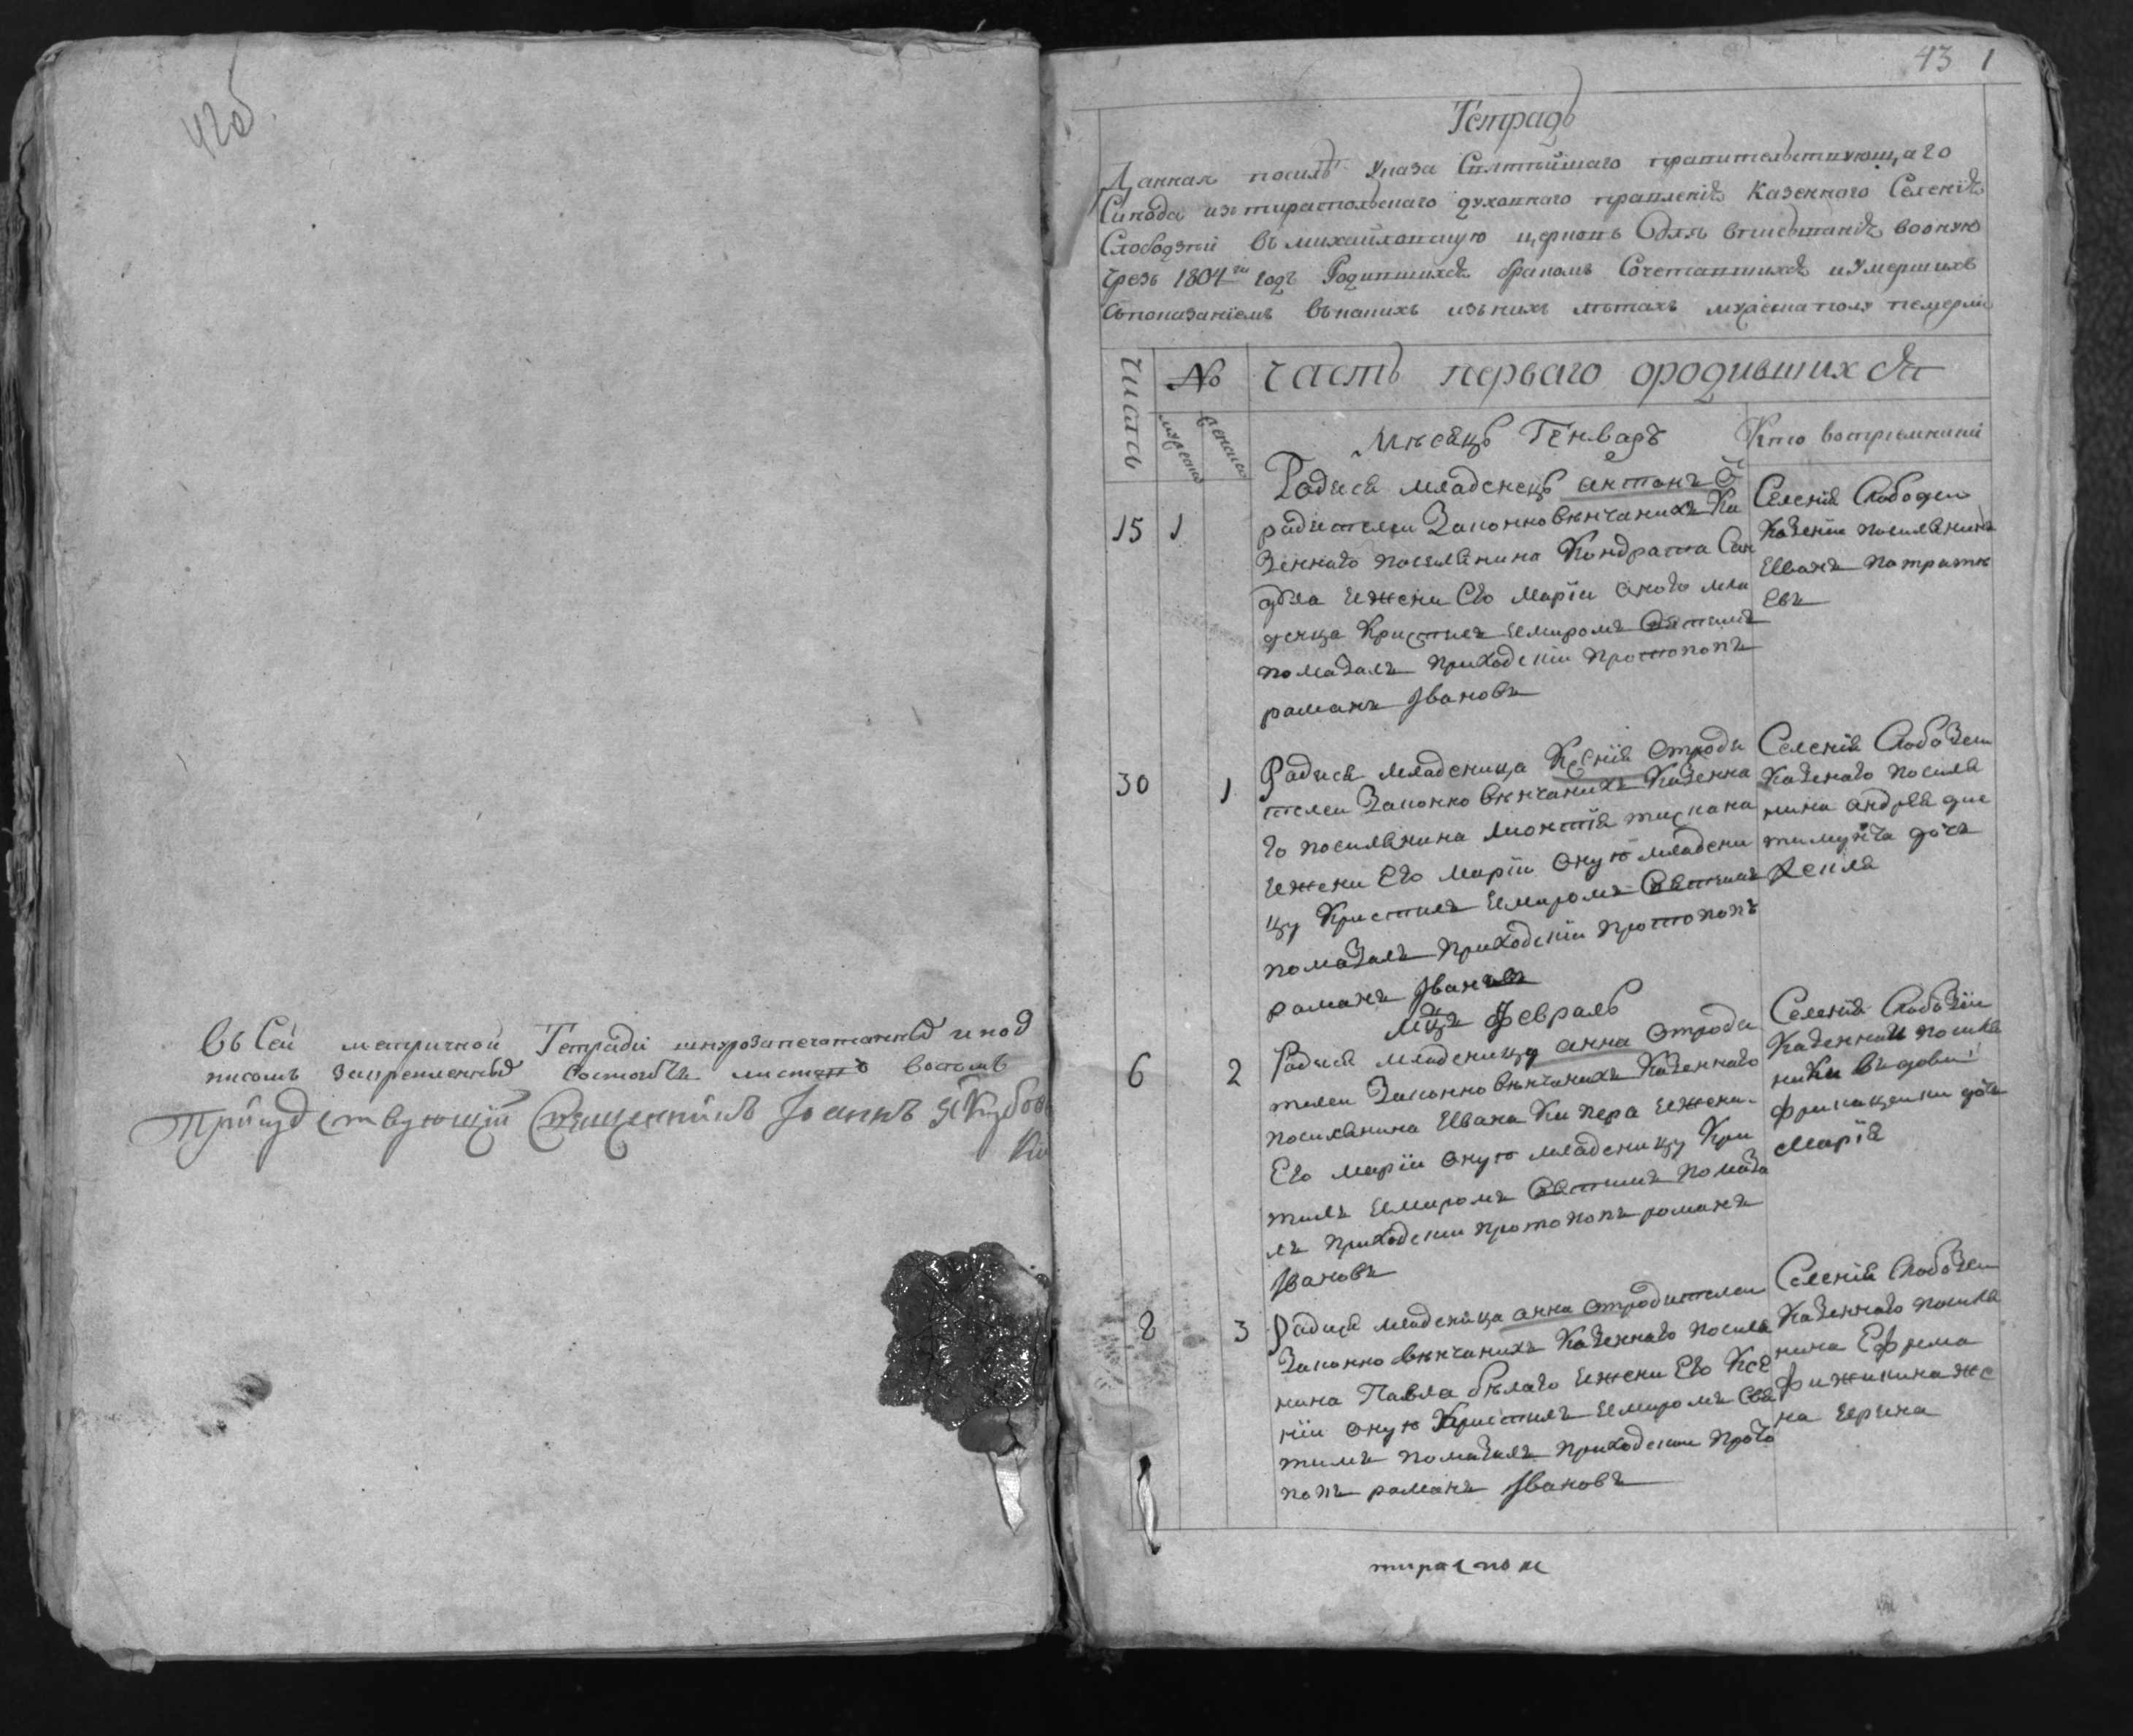 42об
въ Сей метричной Тетради шнурозапечатанной и под
писомъ закрепленной состоитъ листовъ восемь
Присудствующий Священникъ Іоаннъ
43 1
Тетрадь
Данная посилѣ Указа Святѣйшаго правительствующаго
Синода изтираспольскаго духовнаго правленія казенного Селенія
Слободзей въ михайловскую церковь для вписыванія вооную
чрезъ 1804 годъ Родившихся бракомъ Сочетавшихся и Умершихъ
Споказаніемъ вкакихъ изънихъ лѣтахъ мужеска полу померли
числа
№
часть перваго ородившихся
мужеска
женска
Мѣсяцъ Генварь
Кто воспріемники
15 1
Радися младенецъ антонъ Ѿ
радителеи Законно Внчанихъ Ка
Зеннаго поселянина Кондрата Сан
дула ижени Его Маріи оного мла
денца Кристилъ имиромъ Святимъ
помазалъ приходскіи протопопъ
раманъ Івановъ
Селенія Слободзеи
Казеніи поселянинъ
Иванъ
30 1
Радися младеница Ксенія отроди
телеи Законно Внчанихъ Казенна
го поселянина Леонтія
ижени Его Маріи оную младени
цу Кристилъ имиромъ Святимъ
помазалъ приходскіи протопопъ
раманъ Івановъ
Селенія Слобозеи
Казенаго поселя
нина андрея
дочъ
Мца Февраль
6 2
Радися младеницу анна отроди
телеи Законно Внчанихъ Казеннаго
поселянина Ивана Кипера ижени
Его Маріи оную младеницу Кри
тилъ имиромъ Святимъ помаза
лъ приходскіи протопопъ романъ
Івановъ
Селенія Слобозіи
Марія
8 3
Радися младеница анна отродителеи
Законно Внчанихъ Казеннаго поселя
нина Павла бѣлаго ижени Его Ксе
ніи оную Кристилъ имиромъ Свя
тимъ помазалъ приходскіи прото
попъ раманъ Івановъ
Селенія Слобозеи
Казеннаго поселя
нина Ефима
на Ирина
тираспол